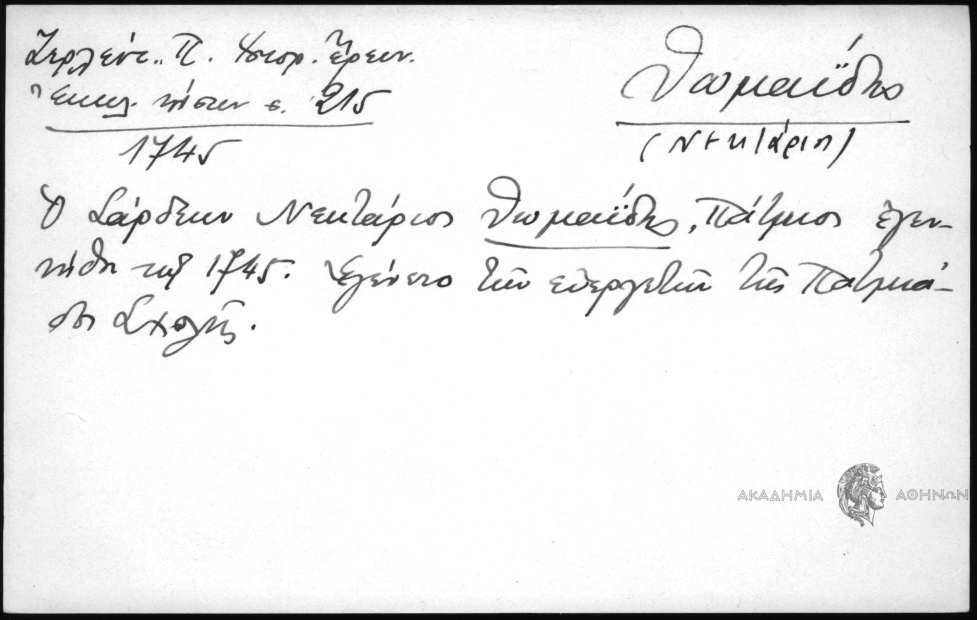 Ζερλέντ. Π. Ἱστορ. Ἔρευν.
Ἐκκλ. νήσων σ. 215
1745
Θωμαΐδης
(Νεκτάριος)
Ὁ Σάρδεων Νεκτάριος Θωμαΐδης, Πάτμιος ἐγεν-
νήθη τῷ 1745. Ἐγένετο τῶν εὐεργετῶν τῆς Πατμιά-
δος Σχολῆς.
ΑΚΑΔΗΜΙΑ ΑΘΗΝΩΝ